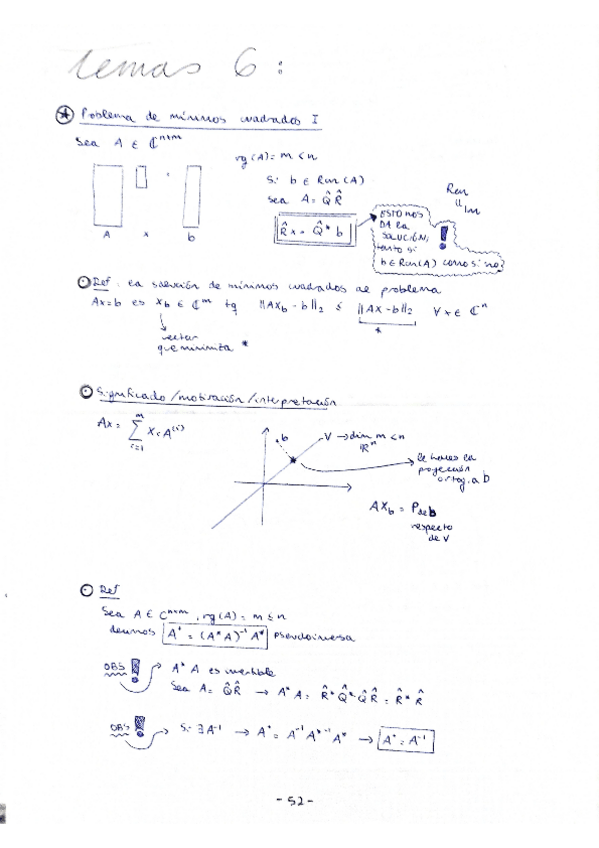 temas 6:
Problema de mínimos cuadrados I
Sea A ∈ ℂⁿˣᵐ
rg(A) = m < n
Si b ∈ Ran(A)
sea A = Q̂ R̂
R̂x = Q̂* b
ESTO NOS
DA la
SOLUCIÓN,
tanto si
b ∈ Ran(A) como si no?
!
Ran
||
Im
A x b
Def: La solución de mínimos cuadrados de problema
Ax=b es x_b ∈ ℂᵐ tq ||Ax_b - b||₂ ≤ ||Ax - b||₂ ∀x ∈ ℂⁿ
*
vector
que minimiza *
Significado/motivación/interpretación
Ax = Σ_{i=1}^{m} x_i A^(i)
b
V → dim m < n
ℝⁿ
le hemos la
proyección
ortog. a b
Ax_b = P de b
respecto
de V
Def
Sea A ∈ ℂⁿˣᵐ, rg(A) = m ≤ n
A⁺ = (A* A)⁻¹ A* pseudoinversa
OBS !
A* A es invertible
Sea A = Q̂R̂ → A* A = R̂* Q̂* Q̂ R̂ = R̂* R̂
OBS !
Si ∃A⁻¹ → A⁺ = A⁻¹ A*⁻¹ A* → A⁺ = A⁻¹
- 52 -